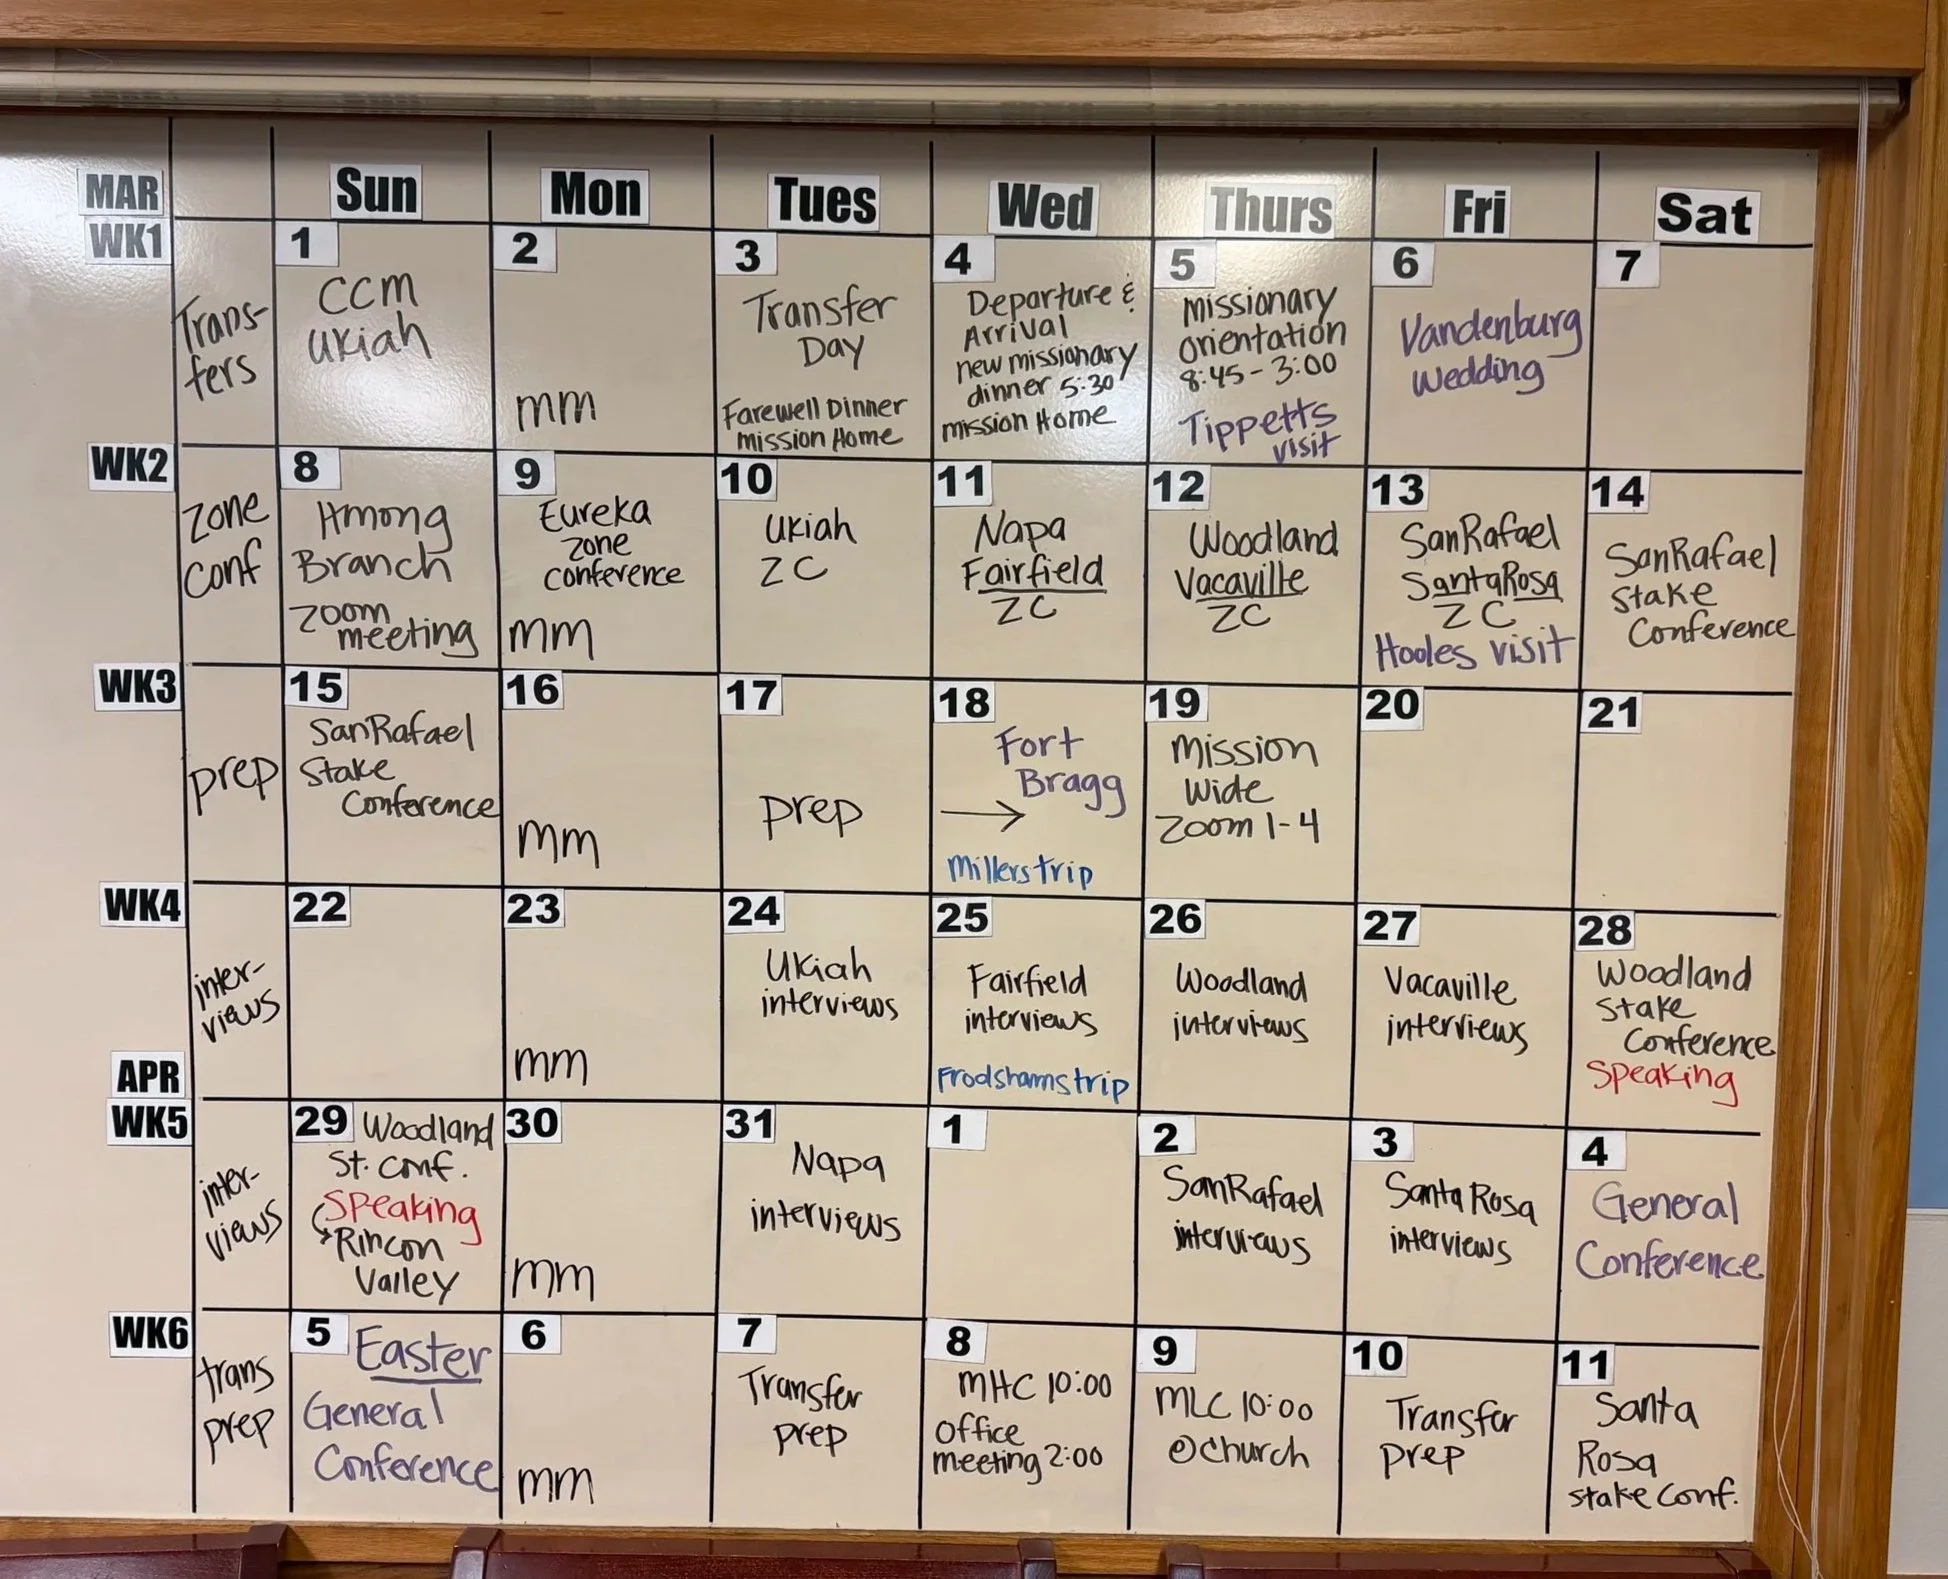 MAR
Sun
Mon
Tues
Wed
Thurs
Fri
Sat
WK1
Trans-
fers
1
CCM
Ukiah
2
mm
3
Transfer
Day
Farewell Dinner
mission Home
4
Departure &
Arrival
new missionary
dinner 5:30
mission Home
5
missionary
orientation
8:45 - 3:00
Tippetts
visit
6
Vandenburg
Wedding
7
WK2
zone
conf
8
Hmong
Branch
zoom
meeting
9
Eureka
zone
conference
mm
10
Ukiah
ZC
11
Napa
Fairfield
ZC
12
Woodland
Vacaville
ZC
13
SanRafael
SantaRosa
ZC
Hooles visit
14
SanRafael
Stake
Conference
WK3
prep
15
SanRafael
Stake
Conference
16
mm
17
prep
18
Fort
Bragg
→
Millers trip
19
Mission
Wide
Zoom 1-4
20
21
WK4
inter-
views
22
23
mm
24
Ukiah
interviews
25
Fairfield
interviews
Frodshams trip
26
Woodland
interviews
27
Vacaville
interviews
28
Woodland
Stake
Conference
Speaking
APR
WK5
inter-
views
29 Woodland
St. Conf.
Speaking
Rincon
Valley
30
mm
31
Napa
interviews
1
2
SanRafael
interviews
3
Santa Rosa
interviews
4
General
Conference
WK6
trans
prep
5 Easter
General
Conference
6
mm
7
Transfer
prep
8
MHC 10:00
Office
meeting 2:00
9
MLC 10:00
@church
10
Transfer
prep
11
Santa
Rosa
Stake Conf.